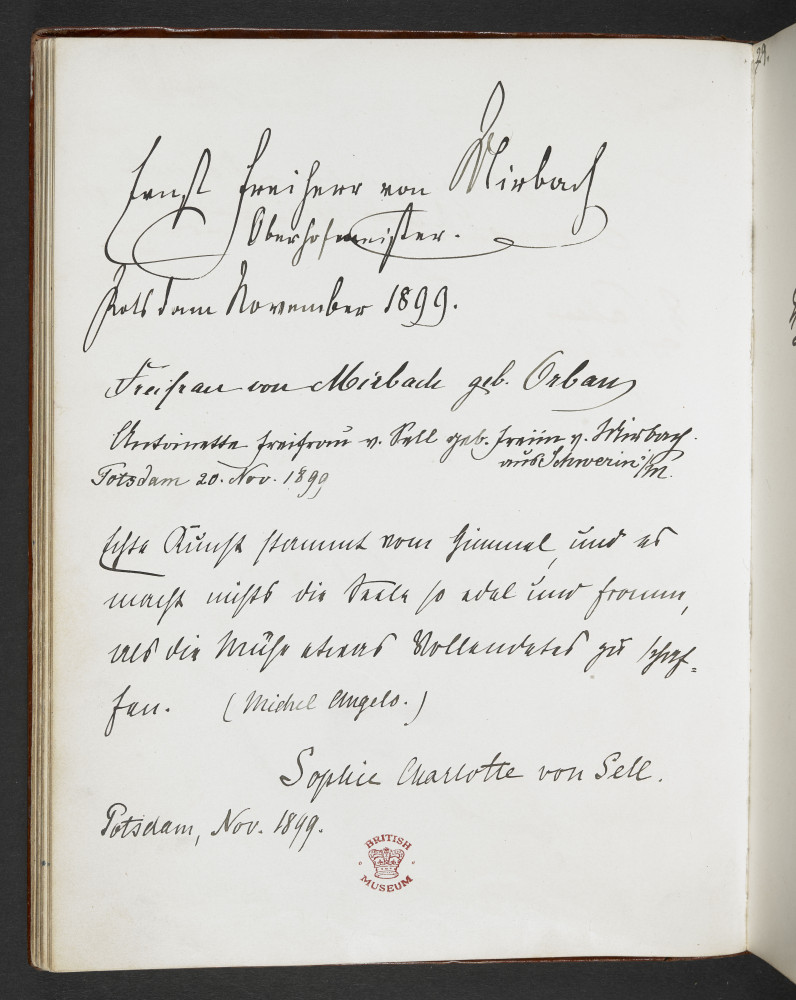 Ernst Freiherr von Mirbach
Oberhofmeister.
Potsdam November 1899.
Freifrau von Mirbach geb. Orban
Antoinette Freifrau v. Sell geb. Freiin v. Mirbach.
aus Schwerin i/M.
Potsdam 20. Nov. 1899
Echte Kunst stammt vom Himmel, und es
macht nichts die Seele so edel und fromm,
als die Mühe etwas Vollendetes zu schaf=
fen. (Michel Angelo.)
Sophie Charlotte von Sell.
Potsdam, Nov. 1899.
BRITISH
MUSEUM
29.